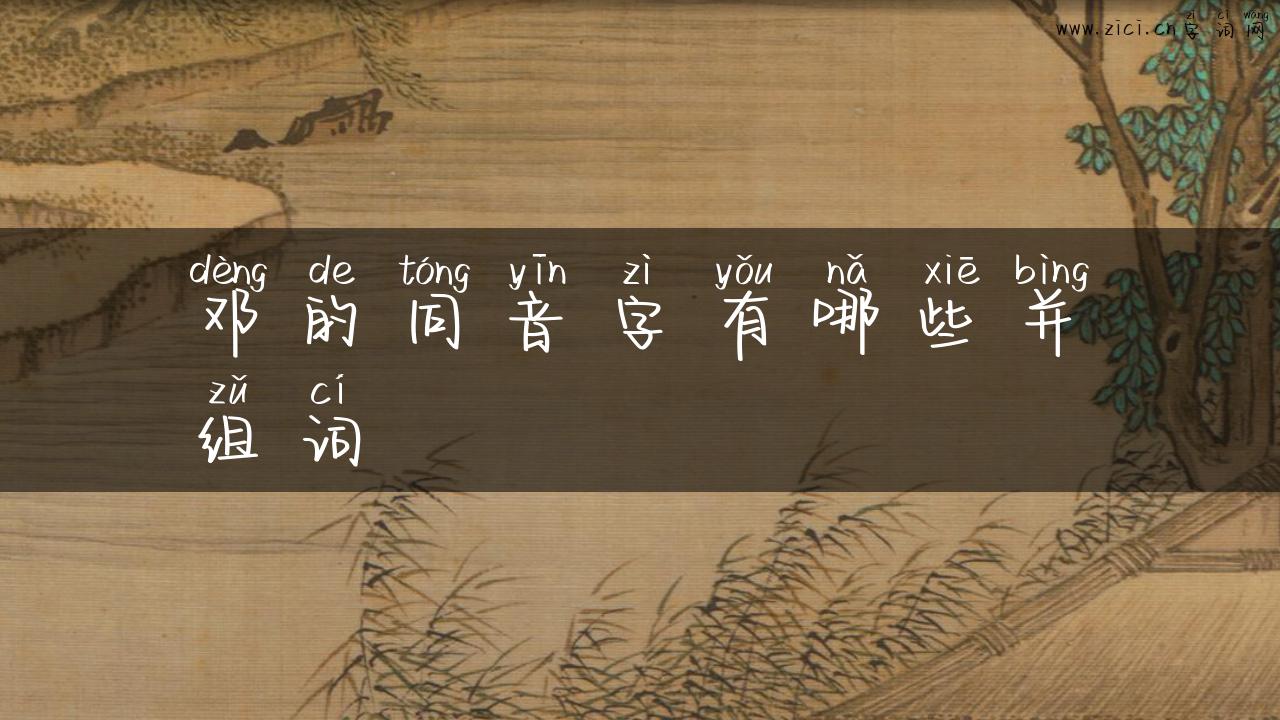 zì cí wǎng
www.zici.cn字词网
dèng de tóng yīn zì yǒu nǎ xiē bìng
邓的同音字有哪些并
zǔ cí
组词